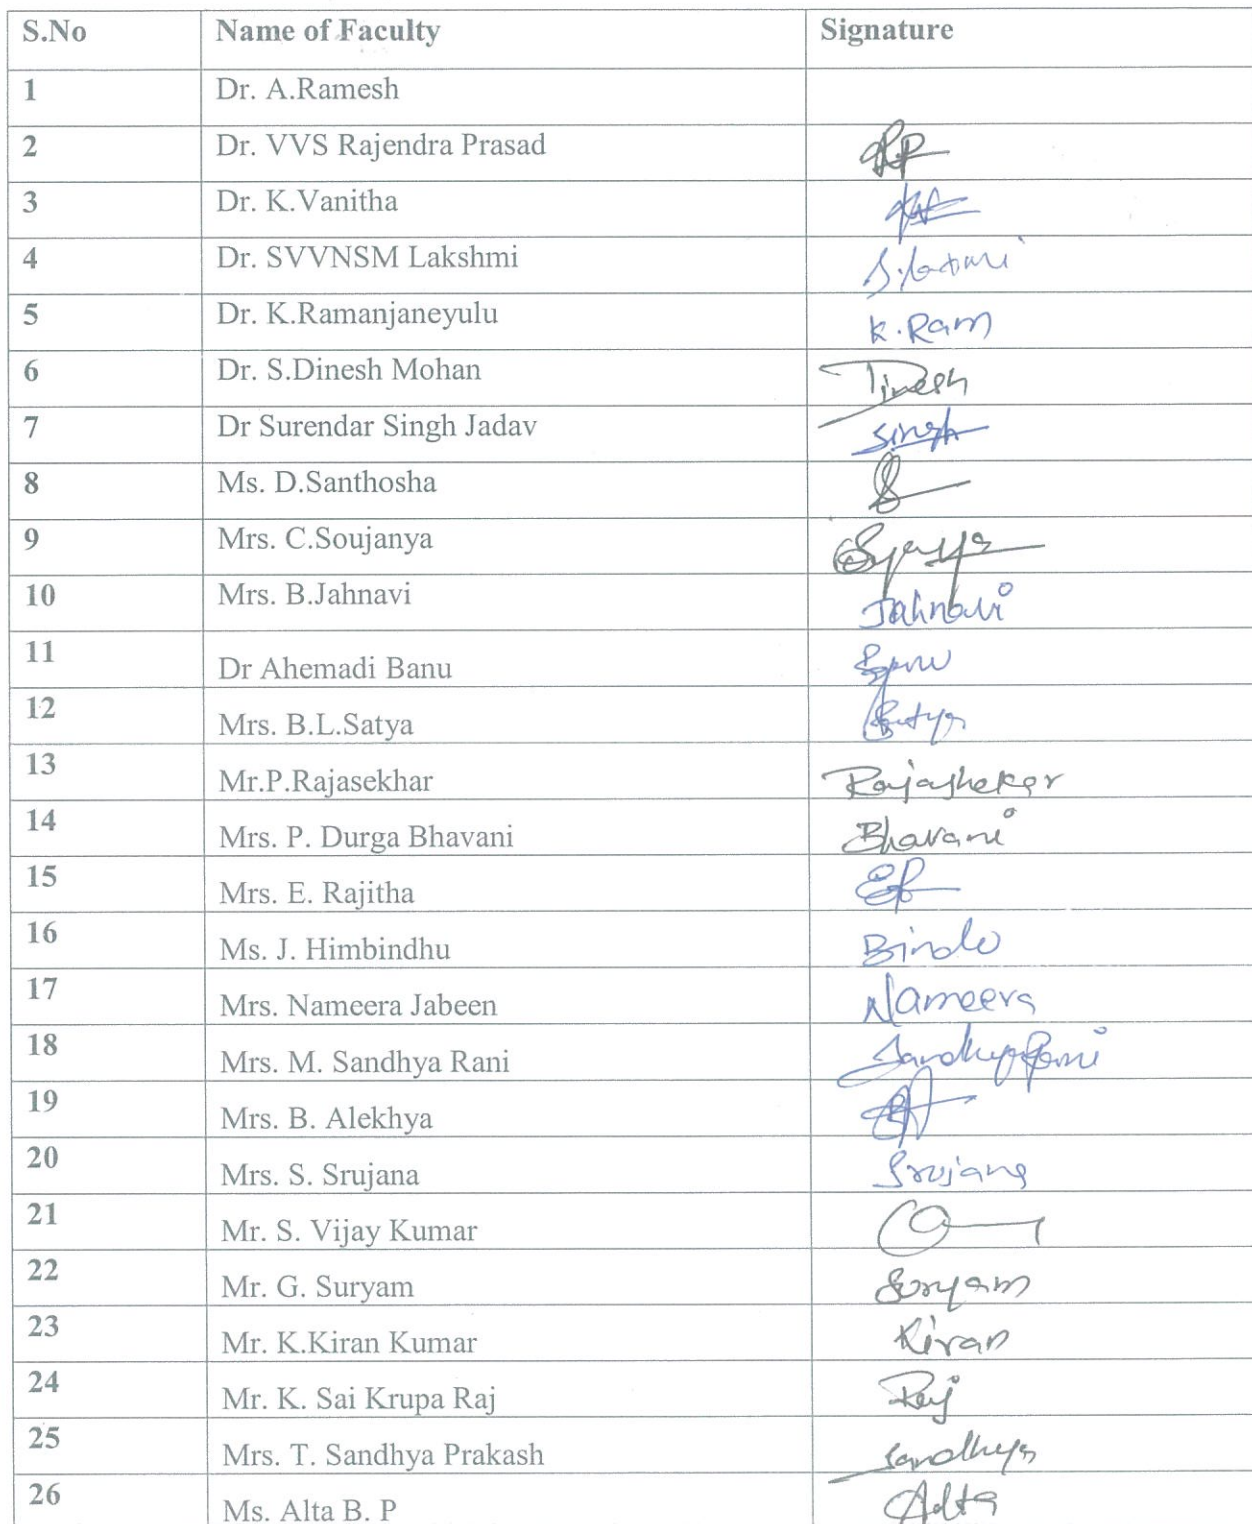 S.No Name of Faculty Signature
1 Dr. A.Ramesh
2 Dr. VVS Rajendra Prasad
3 Dr. K.Vanitha
4 Dr. SVVNSM Lakshmi S.Laxmi
5 Dr. K.Ramanjaneyulu K.Ram
6 Dr. S.Dinesh Mohan Dinesh
7 Dr Surendar Singh Jadav Singh
8 Ms. D.Santhosha
9 Mrs. C.Soujanya
10 Mrs. B.Jahnavi Jahnavi
11 Dr Ahemadi Banu
12 Mrs. B.L.Satya Satya
13 Mr.P.Rajasekhar Rajasheker
14 Mrs. P. Durga Bhavani Bhavani
15 Mrs. E. Rajitha
16 Ms. J. Himbindhu Bindu
17 Mrs. Nameera Jabeen Nameera
18 Mrs. M. Sandhya Rani Sandhya Rani
19 Mrs. B. Alekhya
20 Mrs. S. Srujana Srujana
21 Mr. S. Vijay Kumar
22 Mr. G. Suryam Suryam
23 Mr. K.Kiran Kumar Kiran
24 Mr. K. Sai Krupa Raj Raj
25 Mrs. T. Sandhya Prakash Sandhya
26 Ms. Alta B. P Alta